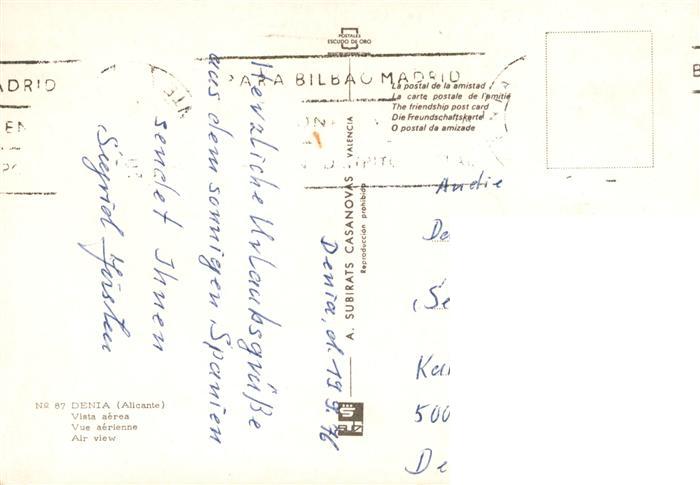 POSTALES
ESCUDO DE ORO
PARA BILBAO MADRID
ADRID
La postal de la amistad
La carte postale de l'amitié
The friendship post card
Die Freundschaftskarte
O postal da amizade
A. SUBIRATS CASANOVAS - VALENCIA
Reproducción prohibida
Denia, d. 19.9.76
Herzliche Urlaubsgrüße
aus dem sonnigen Spanien
sendet Ihnen
Sigrid
An die
De
Se
Ka
500
De
Nº 87 DENIA (Alicante)
Vista aérea
Vue aérienne
Air view